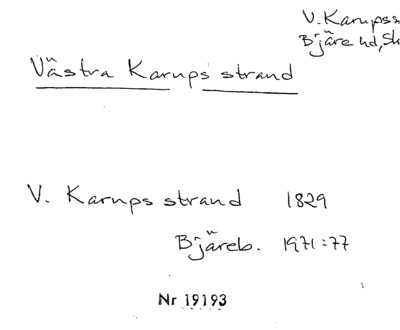 V. Karups
Bjäre hd, Sk
Västra Karups strand
V. Karups strand 1829
Bjäreb. 1971:77
Nr 19193